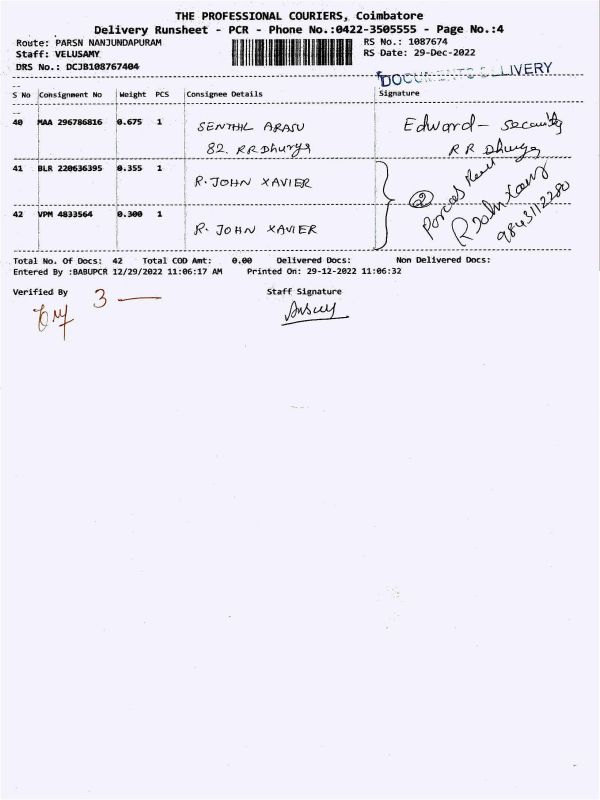 THE PROFESSIONAL COURIERS, Coimbatore
Delivery Runsheet - PCR - Phone No.:0422-3505555 - Page No.:4
Route: PARSN NANJUNDAPURAM RS No.: 1087674
Staff: VELUSAMY RS Date: 29-Dec-2022
DRS No.: DCJB108767404
DOCUMENTS DELIVERY
S No Consignment No Weight PCS Consignee Details Signature
40 MAA 296786816 0.675 1 SENTHIL ARASU Edward - Security
82. RR Dhurya RR Dhurya
41 BLR 220636395 0.355 1 R. JOHN XAVIER
② 
R John Xavier
9843112280
42 VPM 4833564 0.300 1 R. JOHN XAVIER
Total No. Of Docs: 42 Total COD Amt: 0.00 Delivered Docs: Non Delivered Docs:
Entered By :BABUPCR 12/29/2022 11:06:17 AM Printed On: 29-12-2022 11:06:32
Verified By 3 — Staff Signature